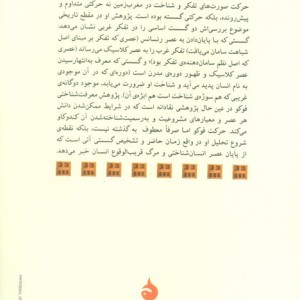 حرکت صورت‌های تفکر و شناخت در مغرب‌زمین نه حرکتی متداوم و
پیش‌رونده، بلکه حرکتی گسسته بوده است. پژوهش او در مقطع تاریخی
موضوع بررسی‌اش دو گسست اساسی را در تفکر غربی نشان می‌دهد.
گسستی که با پایان‌دادن به عصر رنسانس (عصری که تفکر بر مبنای اصل
شباهت سامان می‌یافت) تفکر غرب را به عصر کلاسیک می‌رساند (عصری
که اصل نظم سامان‌دهنده‌ی تفکر بود) و گسستی که معرف به‌انتهارسیدن
عصر کلاسیک و ظهور دوره‌ی مدرن است (دوره‌ای که در آن موجودی
به نام انسان پدید می‌آید و شناخت او ضرورت می‌یابد. موجود دوگانه‌ی
غریبی که هم سوژه‌ی شناخت است هم ابژه‌ی آن). پژوهش معرفت‌شناختی
فوکو در عین حال پژوهشی نقادانه است که در شرایط ممکن‌شدن دانش
هر عصر و معیارهای مشروعیت و به‌رسمیت‌شناخته‌شدن آن کندوکاو
می‌کند. حرکت فوکو اما صرفاً معطوف به گذشته نیست، بلکه نقطه‌ی
شروع تحلیل او در واقع زمان حاضر و تشخیص گسستی آنی است که
از پایان عصر انسان‌شناختی و مرگ قریب‌الوقوع انسان خبر می‌دهد.